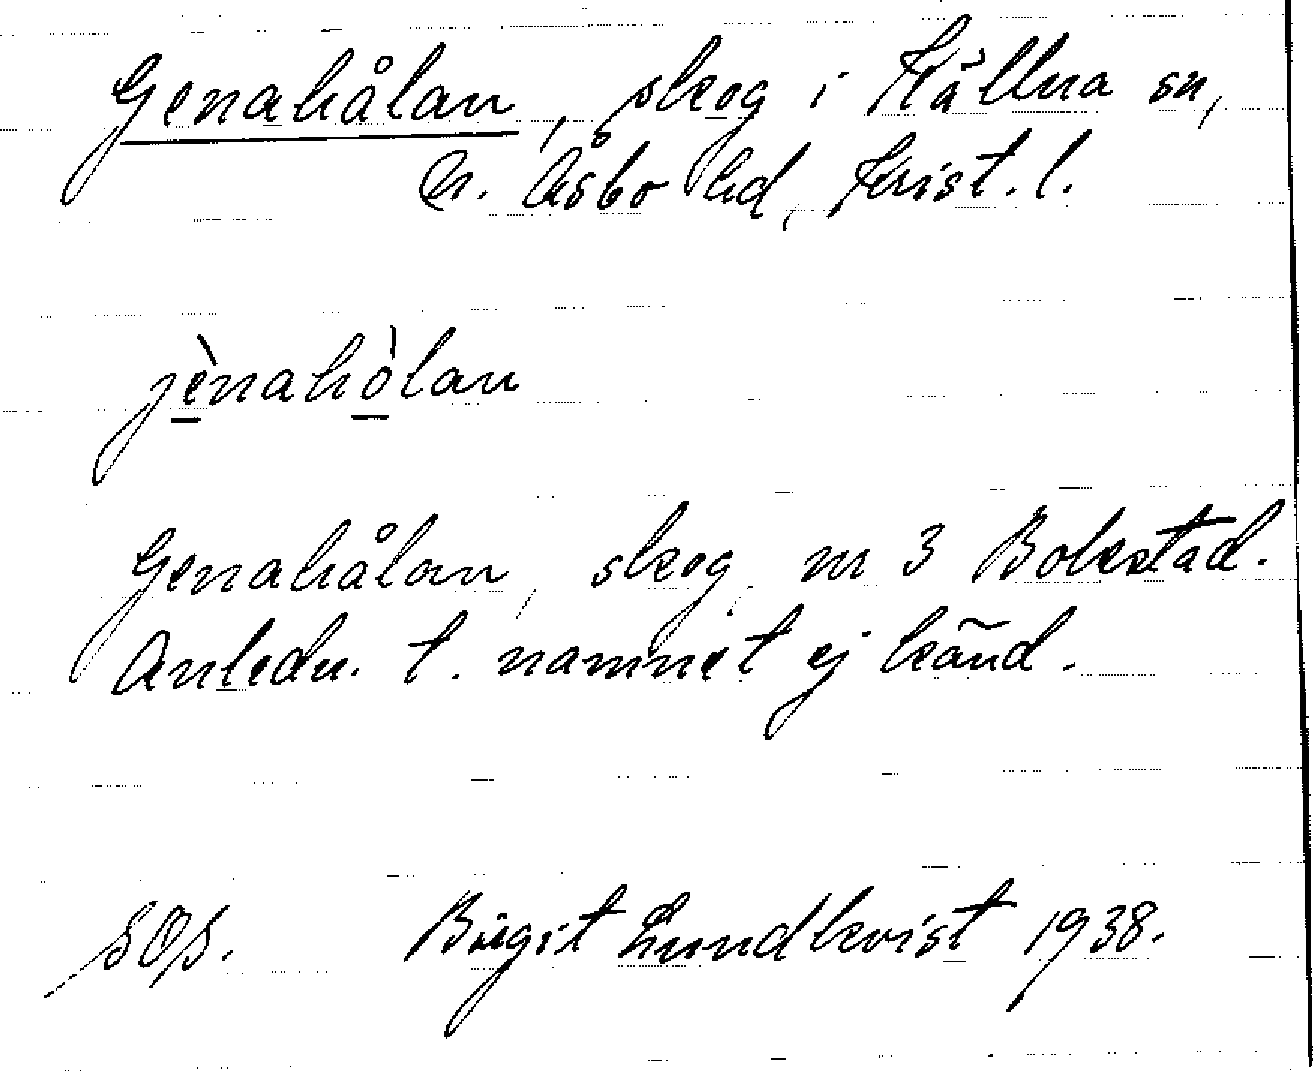 Genahålan, skog i Källna sn,
N. Åsbo hd, Krist. l.
jènahòlan
Genahålan, skog, nr 3 Bokestad.
Anledn. t. namnet ej känd.
Birgit Lundkvist 1938.